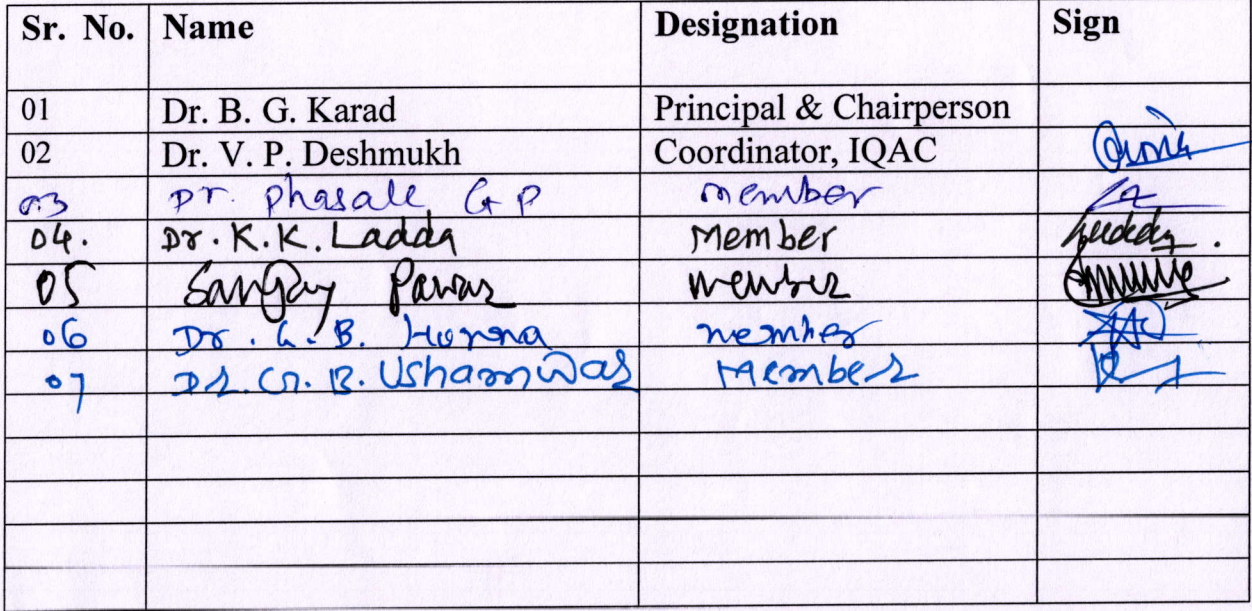 Sr. No. Name Designation Sign
01 Dr. B. G. Karad Principal & Chairperson
02 Dr. V. P. Deshmukh Coordinator, IQAC
03 Dr. Phasale G P member
04. Dr. K. K. Ladda Member
05 Sanjay Pawar member
06 Dr. G. B. member
07 Dr. G. B. Ushamwar Member